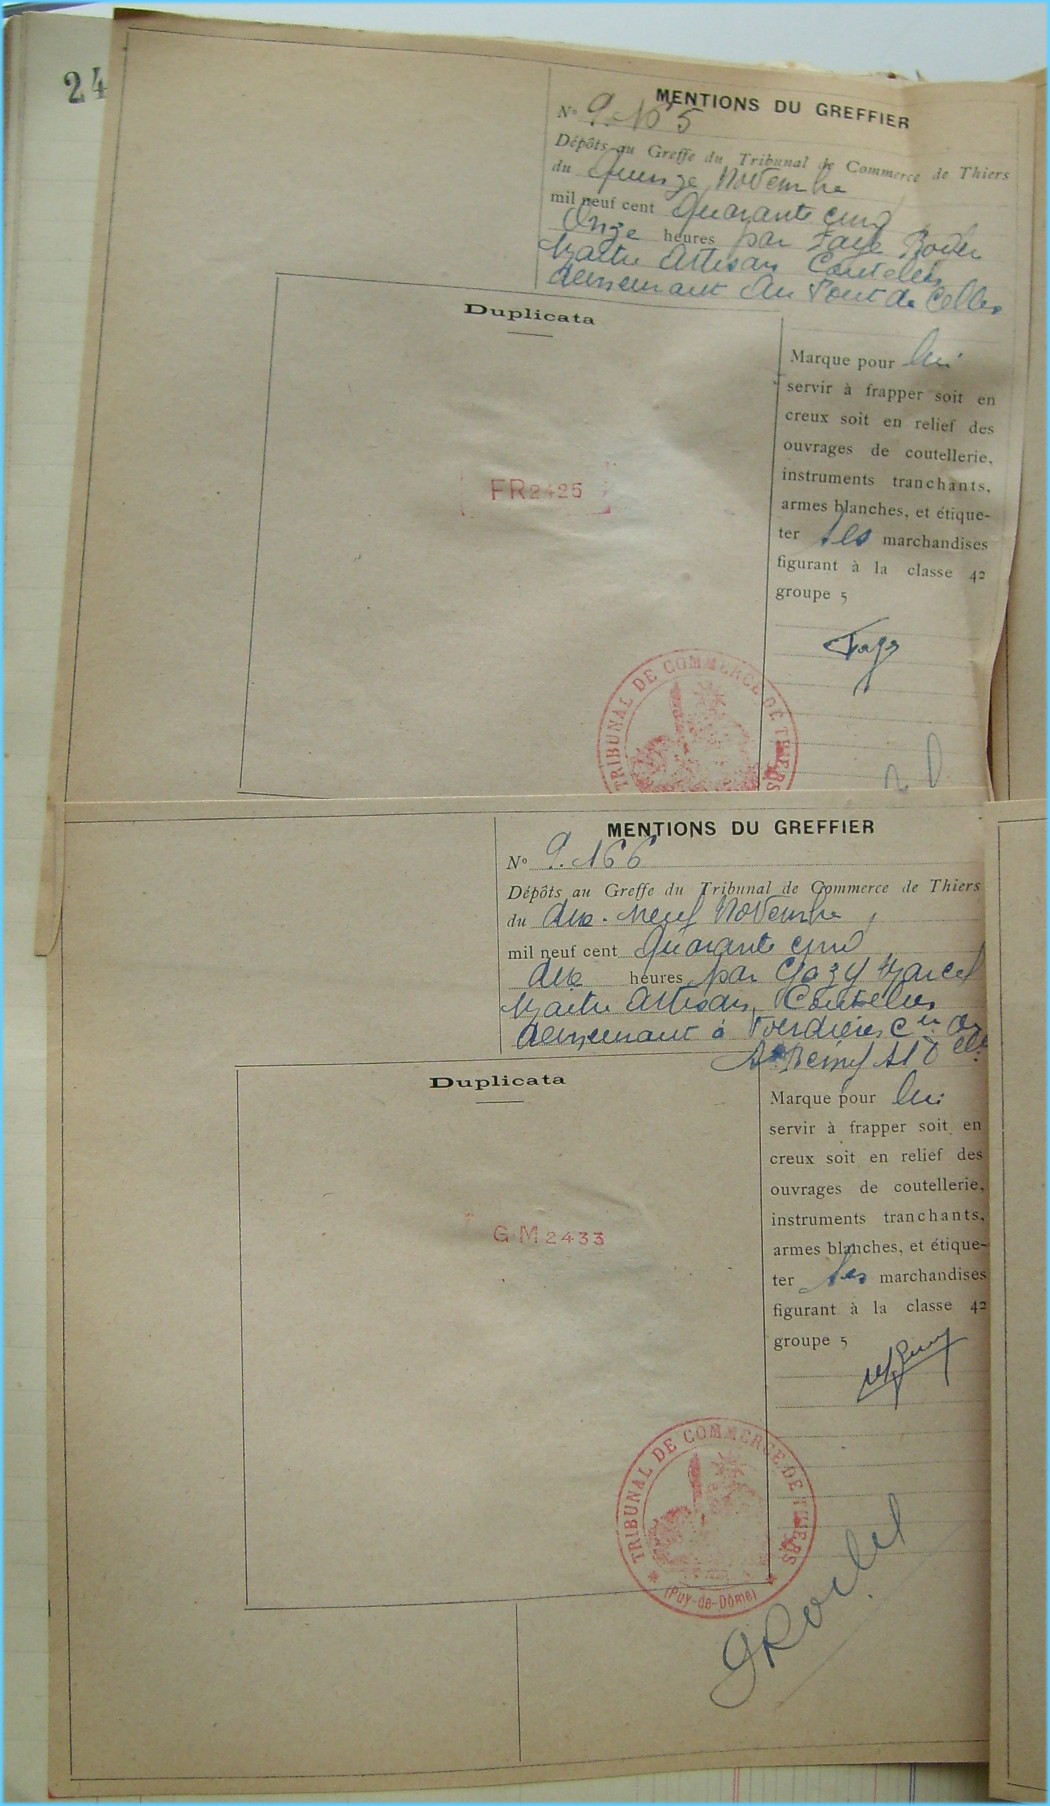 24
MENTIONS DU GREFFIER
N° 9.165
Dépôts au Greffe du Tribunal de Commerce de Thiers
du Quinze Novembre
mil neuf cent Quarante cinq
Onze heures par Faye
Maitre Artisan Coutelier
demeurant Au Pont de Celles
Duplicata
Marque pour lui
servir à frapper soit en
creux soit en relief des
ouvrages de coutellerie,
instruments tranchants,
armes blanches, et étique-
ter ses marchandises
figurant à la classe 42
groupe 5
FR2425
Faye
TRIBUNAL DE COMMERCE DE THIERS
MENTIONS DU GREFFIER
N° 9.166
Dépôts au Greffe du Tribunal de Commerce de Thiers
du dix-neuf Novembre
mil neuf cent Quarante cinq
dix heures par Marcel
Maitre Artisan Coutelier
demeurant à
Duplicata
Marque pour lui
servir à frapper soit en
creux soit en relief des
ouvrages de coutellerie,
instruments tranchants,
armes blanches, et étique-
ter ses marchandises
figurant à la classe 42
groupe 5
G·M 2433
TRIBUNAL DE COMMERCE DE THIERS
(Puy-de-Dôme)